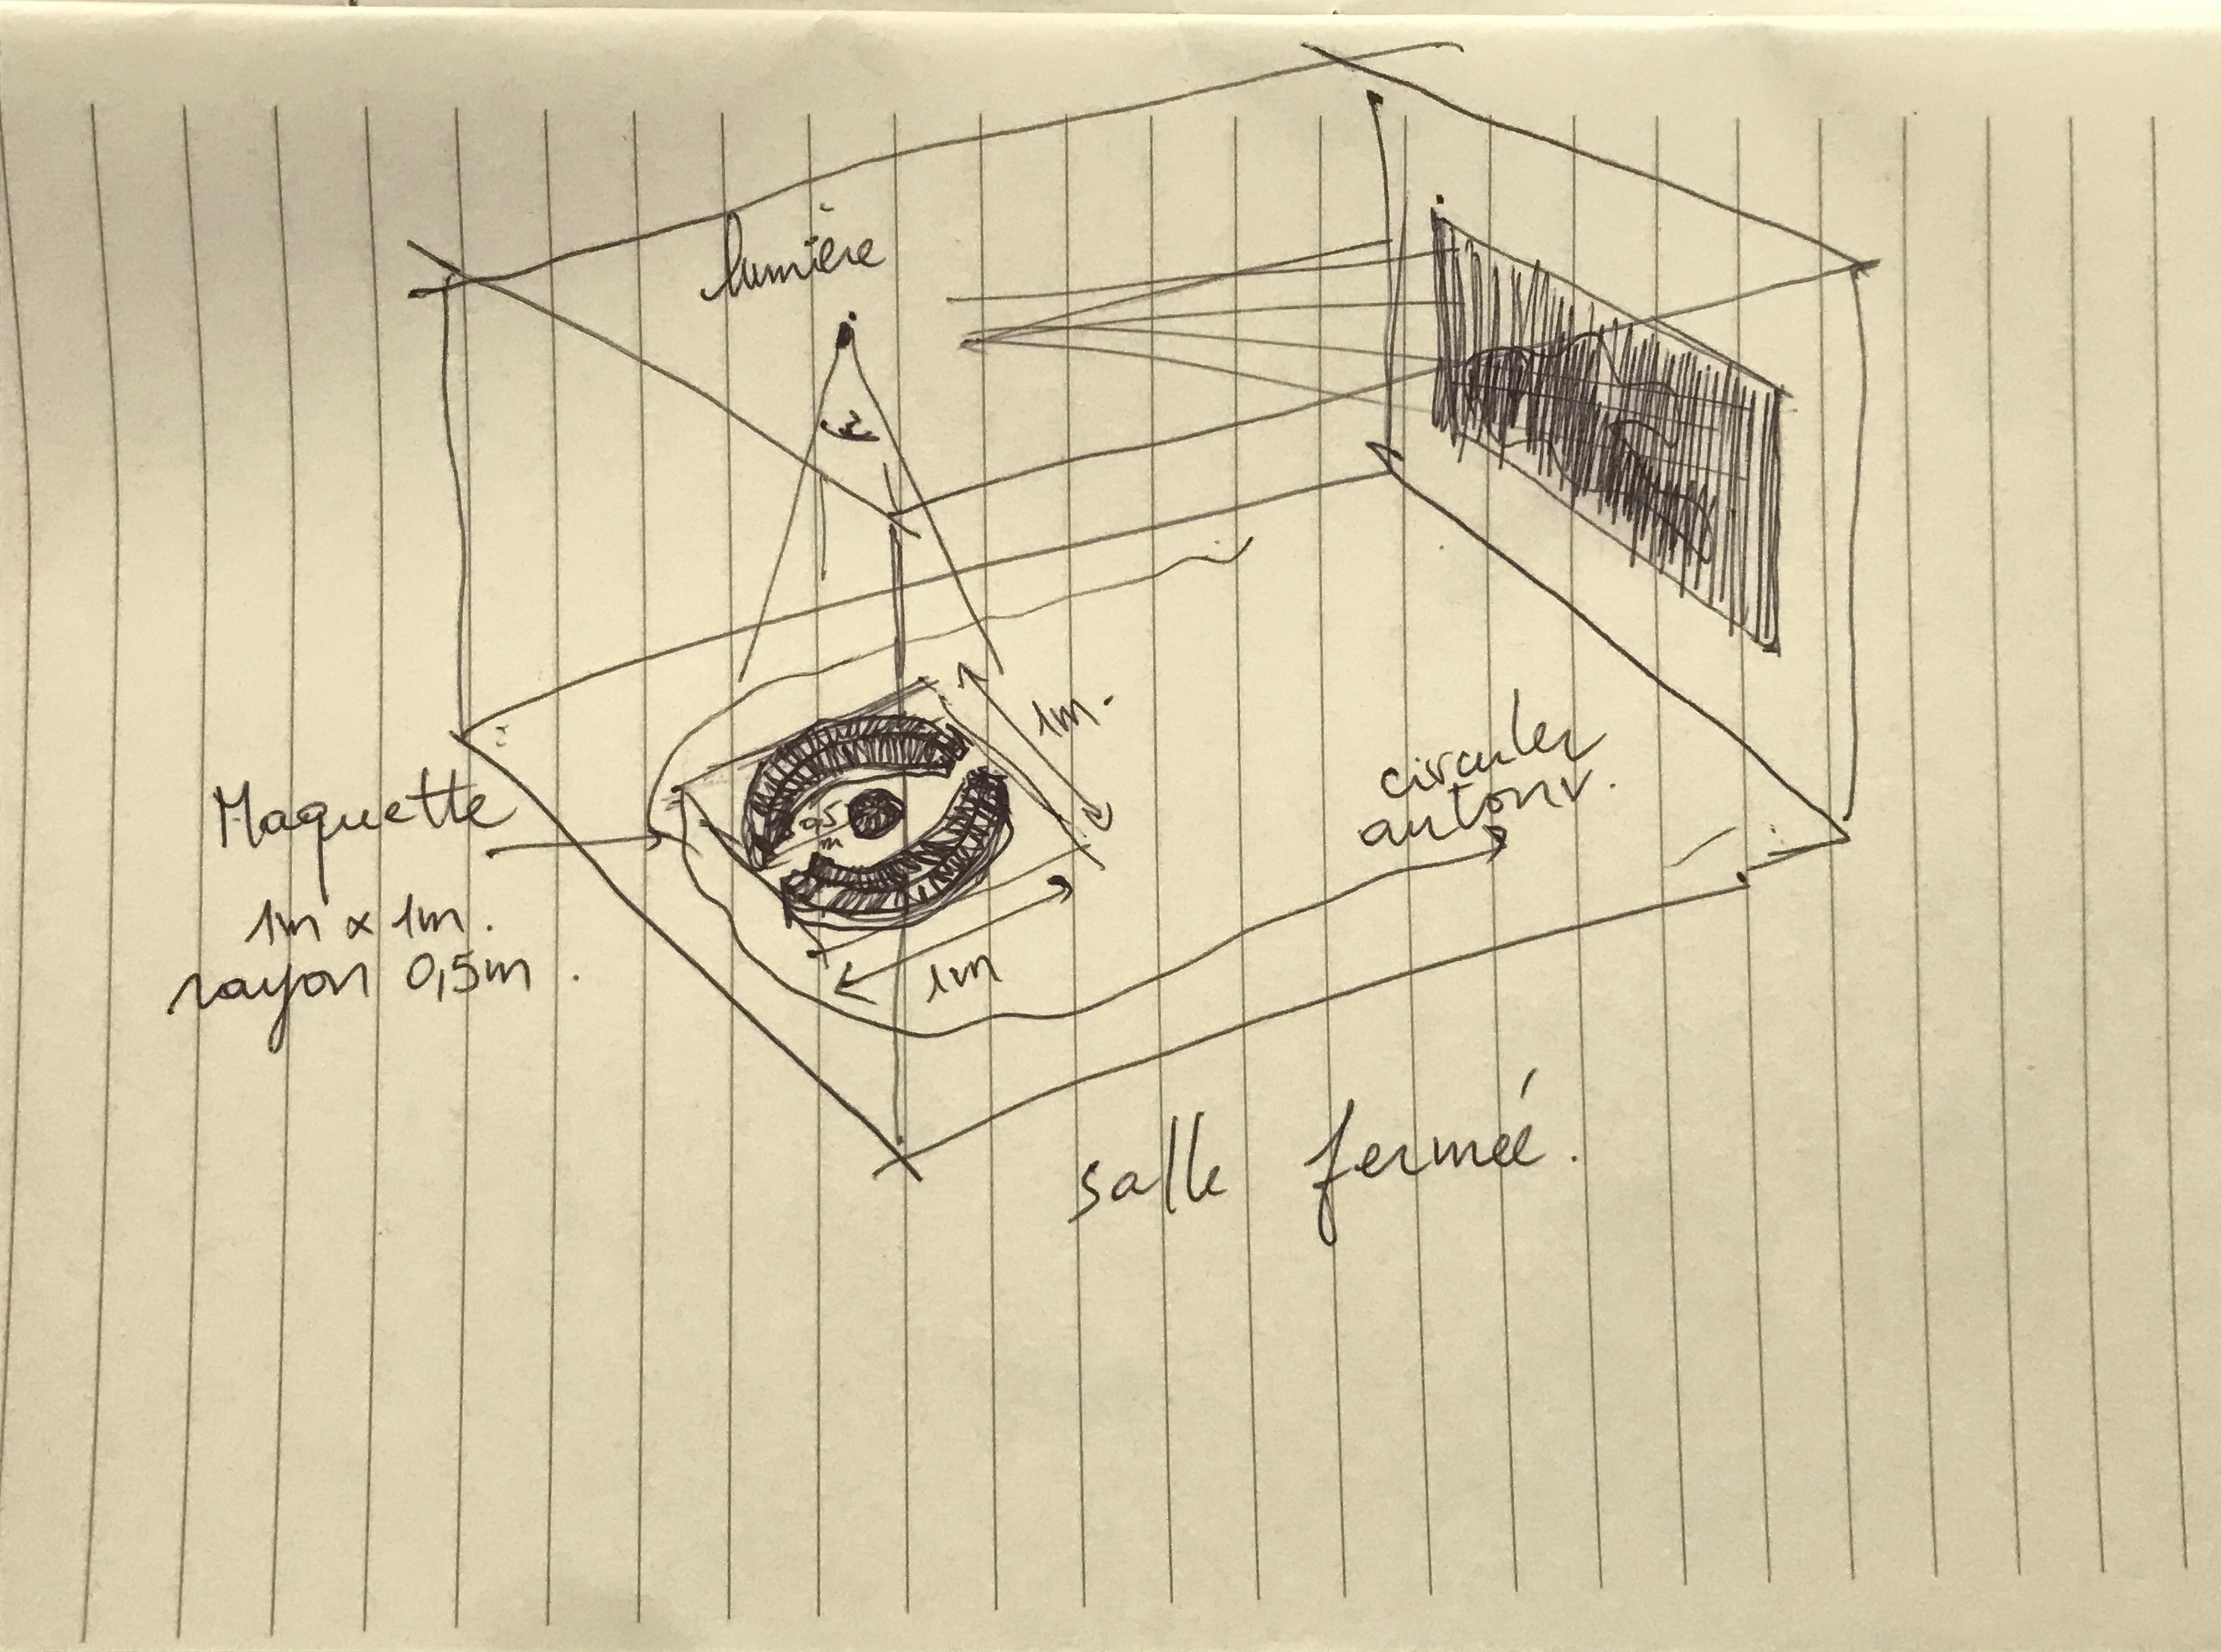 lumière
1m.
Maquette
1m x 1m.
rayon 0,5m.
0,5
m
circuler
autour.
1m
salle fermée.